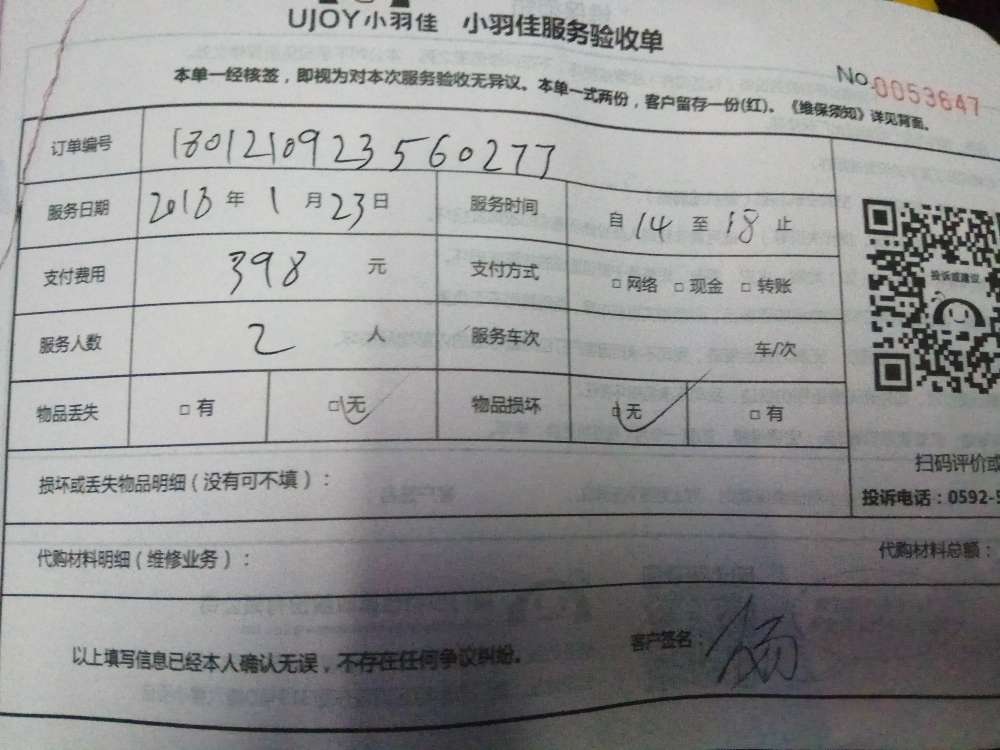 UJOY小羽佳 小羽佳服务验收单
No.0053647
本单一经核签，即视为对本次服务验收无异议。本单一式两份，客户留存一份(红)。《维保须知》详见背面。
订单编号 1801210923560277
服务日期 2018年1月23日 服务时间 自14至18止
支付费用 398元 支付方式 □网络 □现金 □转账
服务人数 2人 服务车次 车/次
物品丢失 □有 □无 物品损坏 □无 □有
投诉或建议
扫码评价或
投诉电话：0592-5
损坏或丢失物品明细（没有可不填）：
代购材料明细（维修业务）： 代购材料总额：
以上填写信息已经本人确认无误，不存在任何争议纠纷。 客户签名：杨